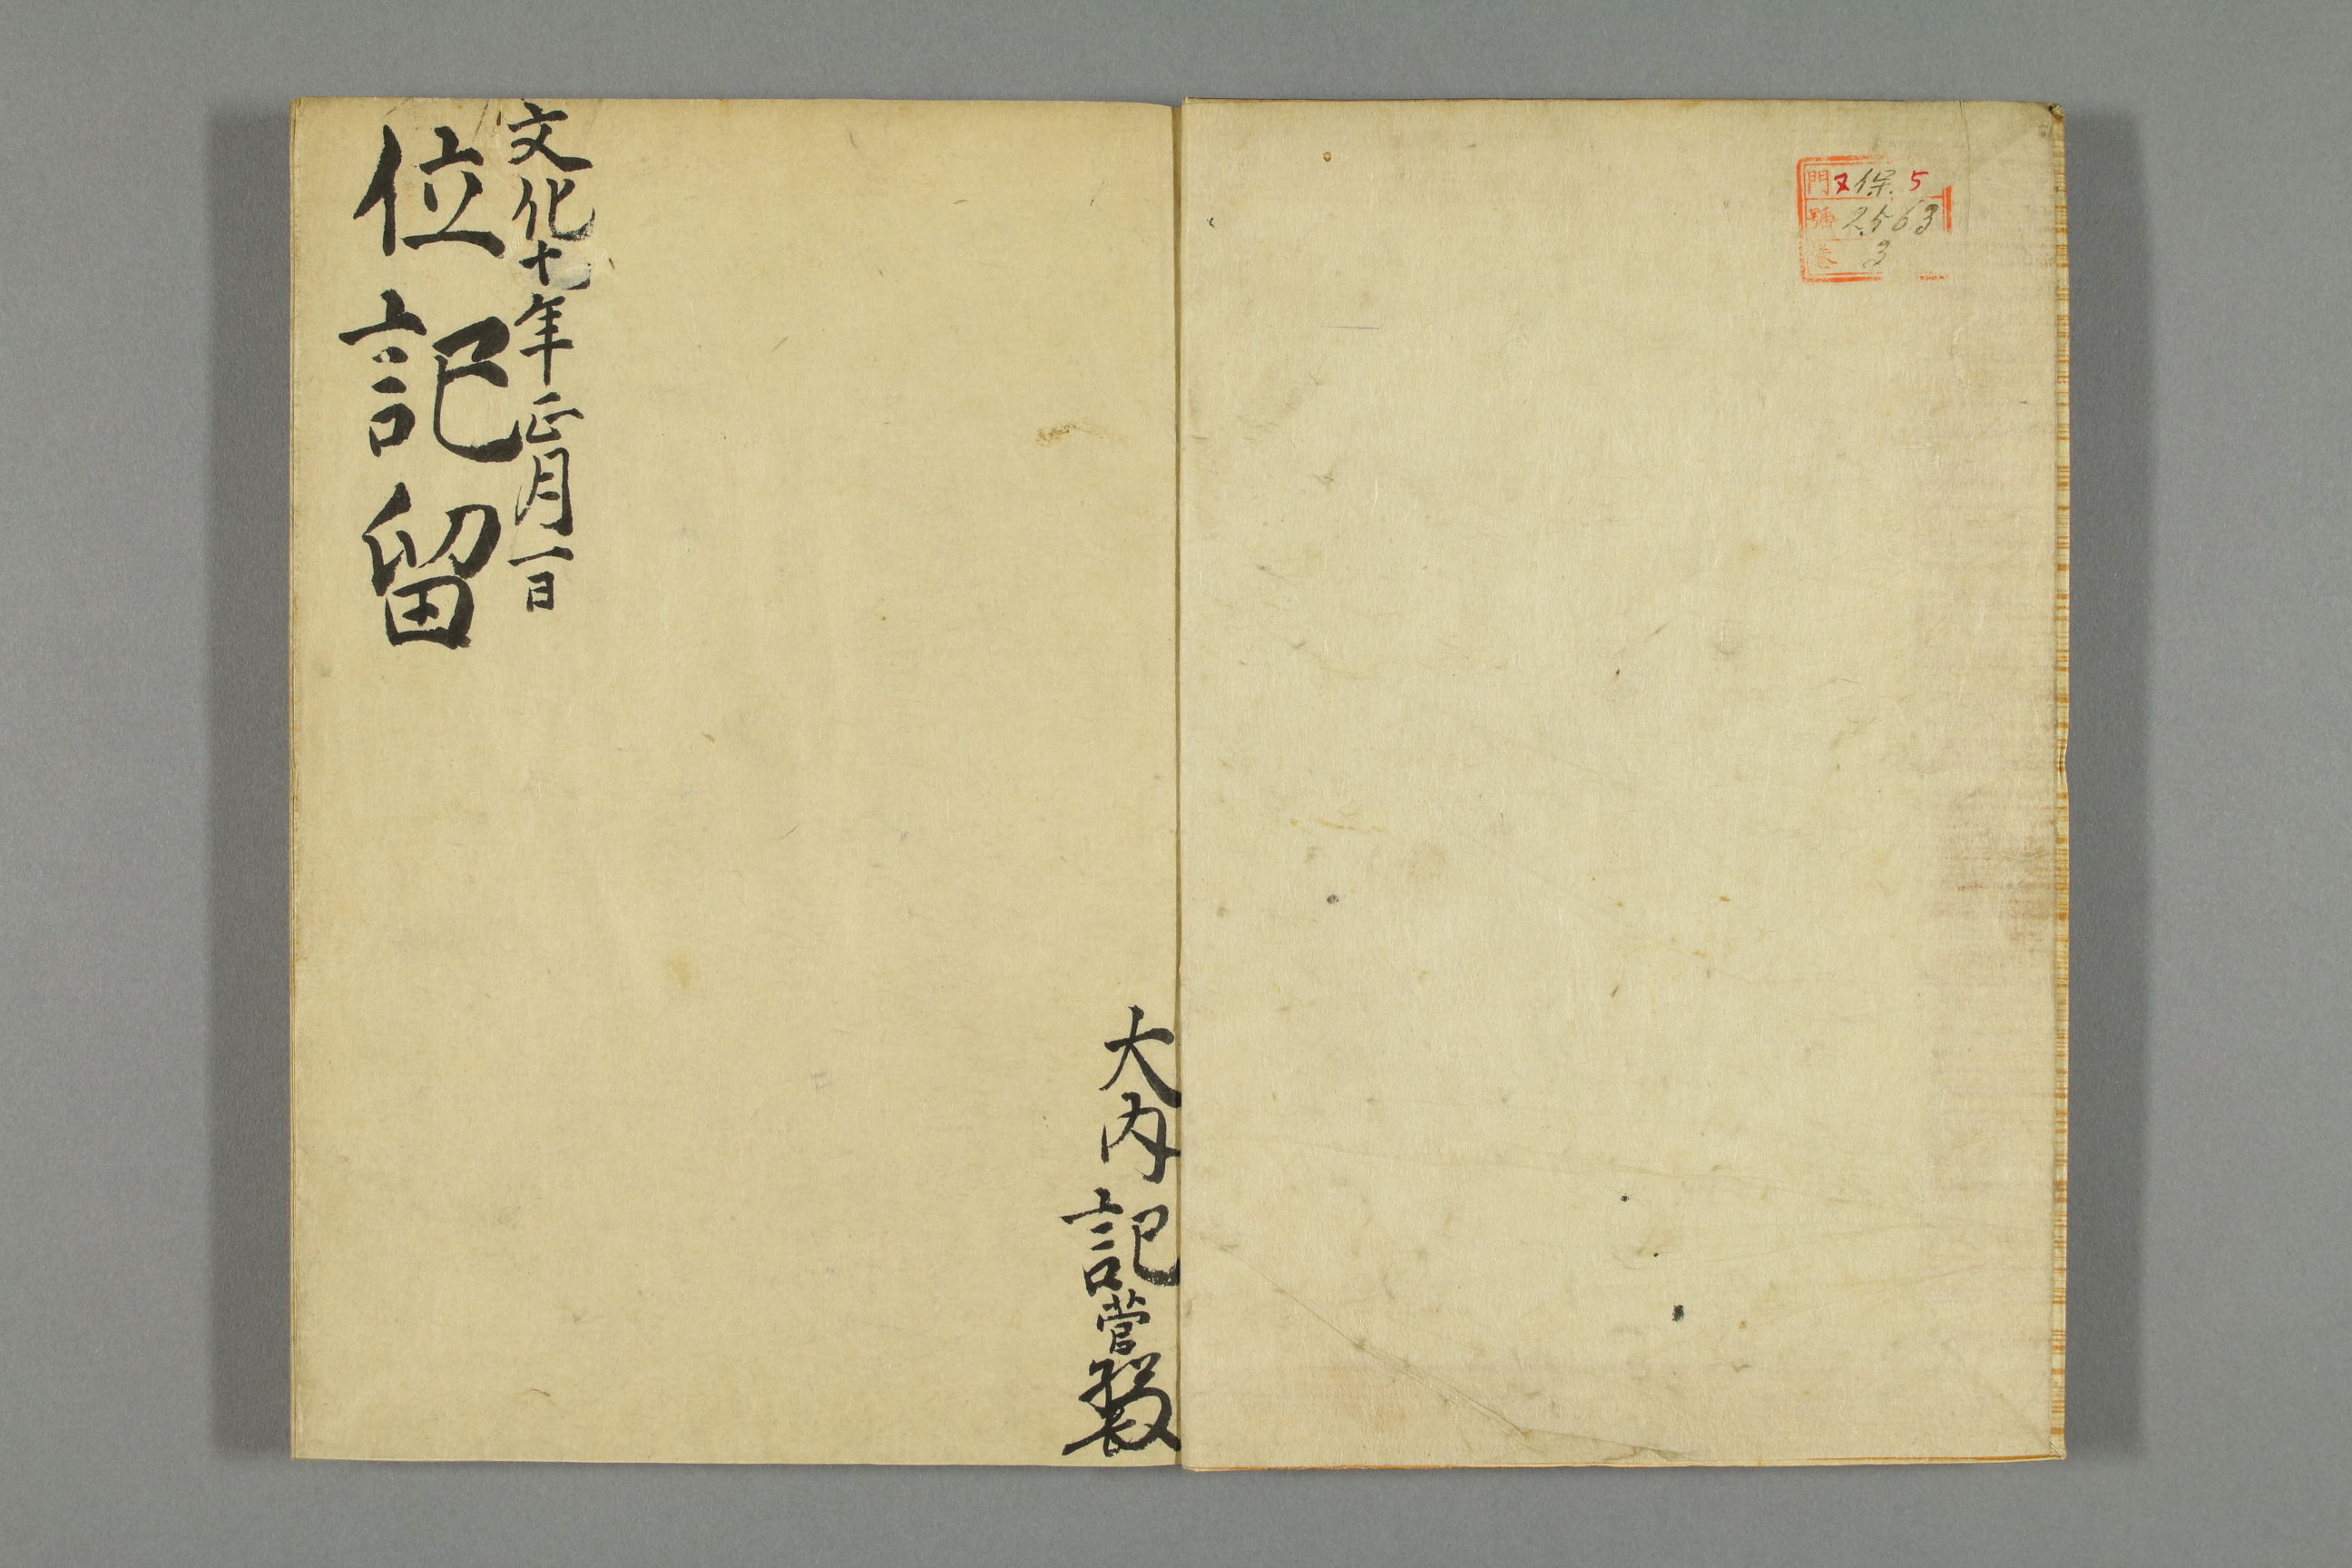 門又保.5
號2563
卷3
大内記菅
文化十年正月一日
位記留